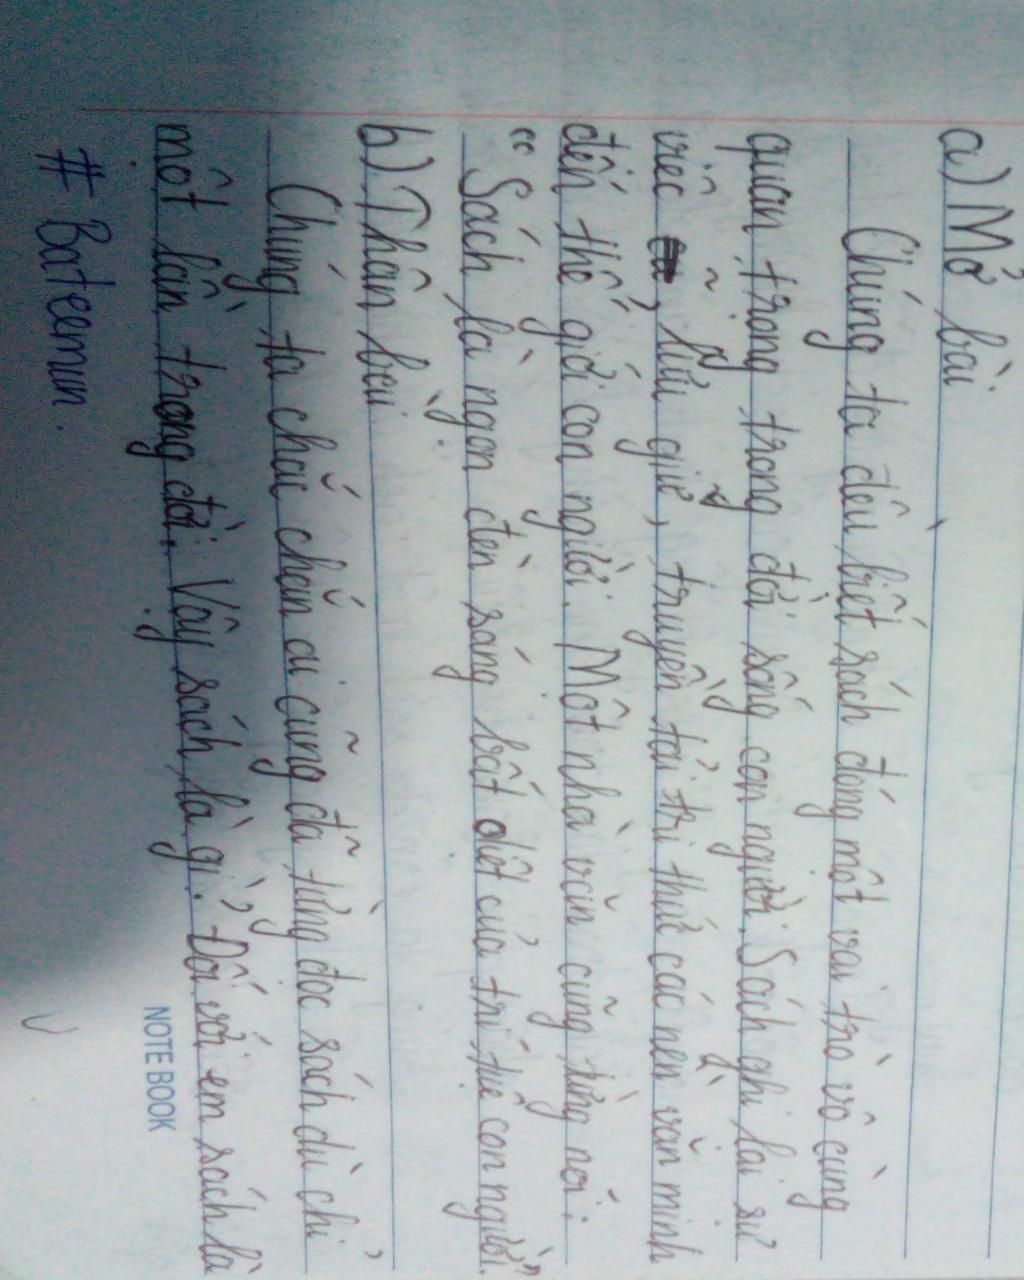 a) Mở bài
Chúng ta đều biết sách đóng một vai trò vô cùng
quan trọng trong đời sống con người. Sách ghi lại sự
việc, lưu giữ, truyền tải tri thức các nền văn minh
đến thế giới con người. Một nhà văn cũng từng nói:
"Sách là ngọn đèn sáng bất diệt của trí tuệ con người."
b) Thân bài
Chúng ta chắc chắn ai cũng đã từng đọc sách dù chỉ
một lần trong đời. Vậy sách là gì? Đối với em sách là
# Bateemun.
NOTE BOOK